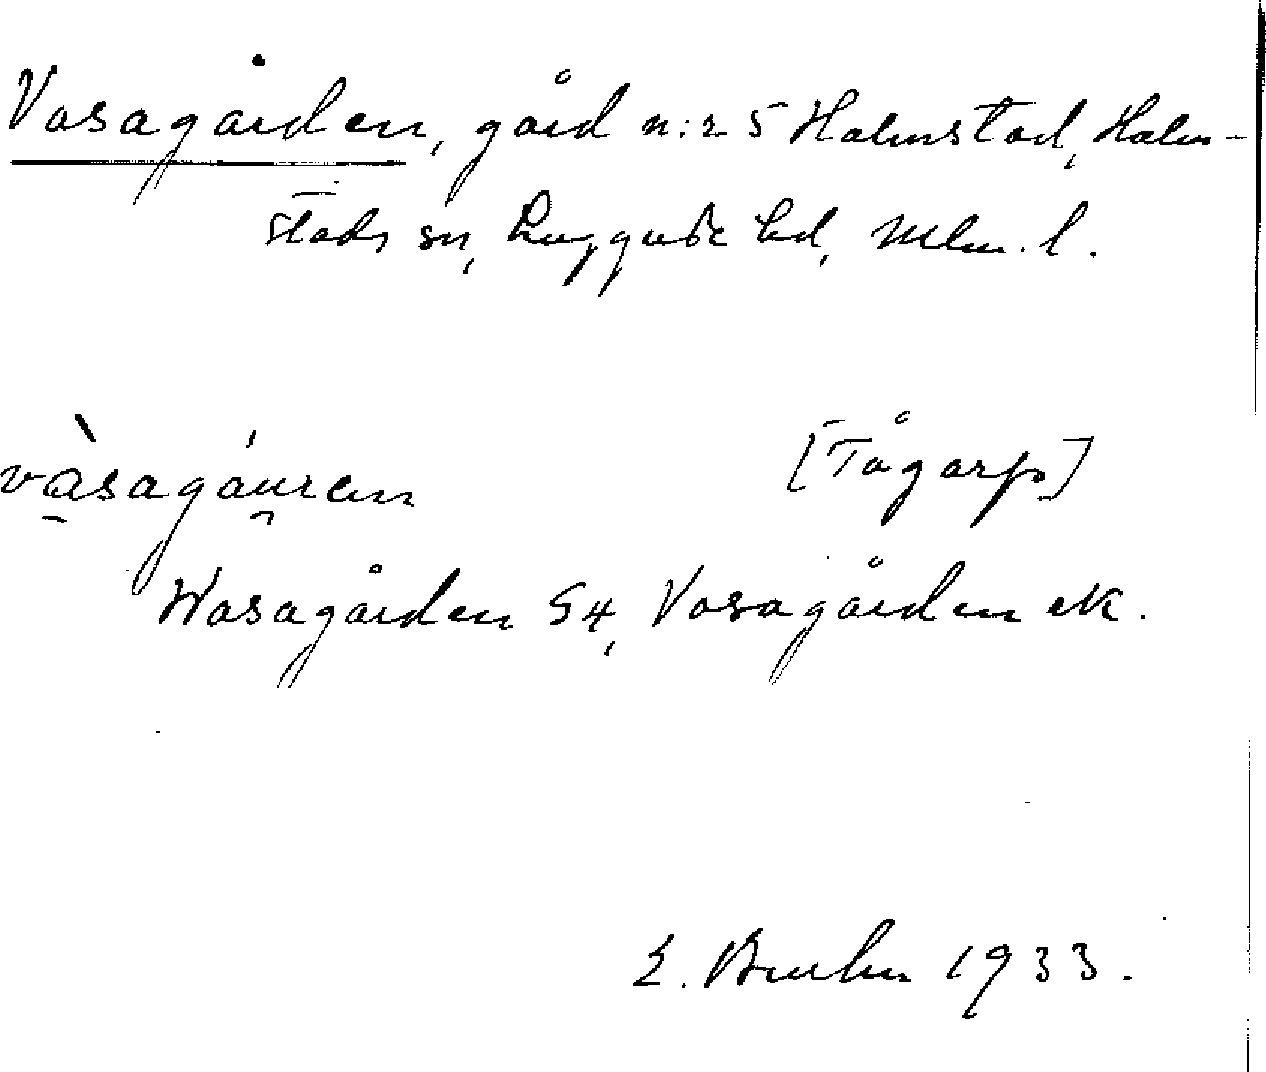 Vasagården, gård n:r 5 Halmstad, Halm-
stads sn, Luggude hd, Mlm. l.
vàsagáuren [Tågarp]
Wasagården G4, Vasagården ek.
E. Bruhn 1933.